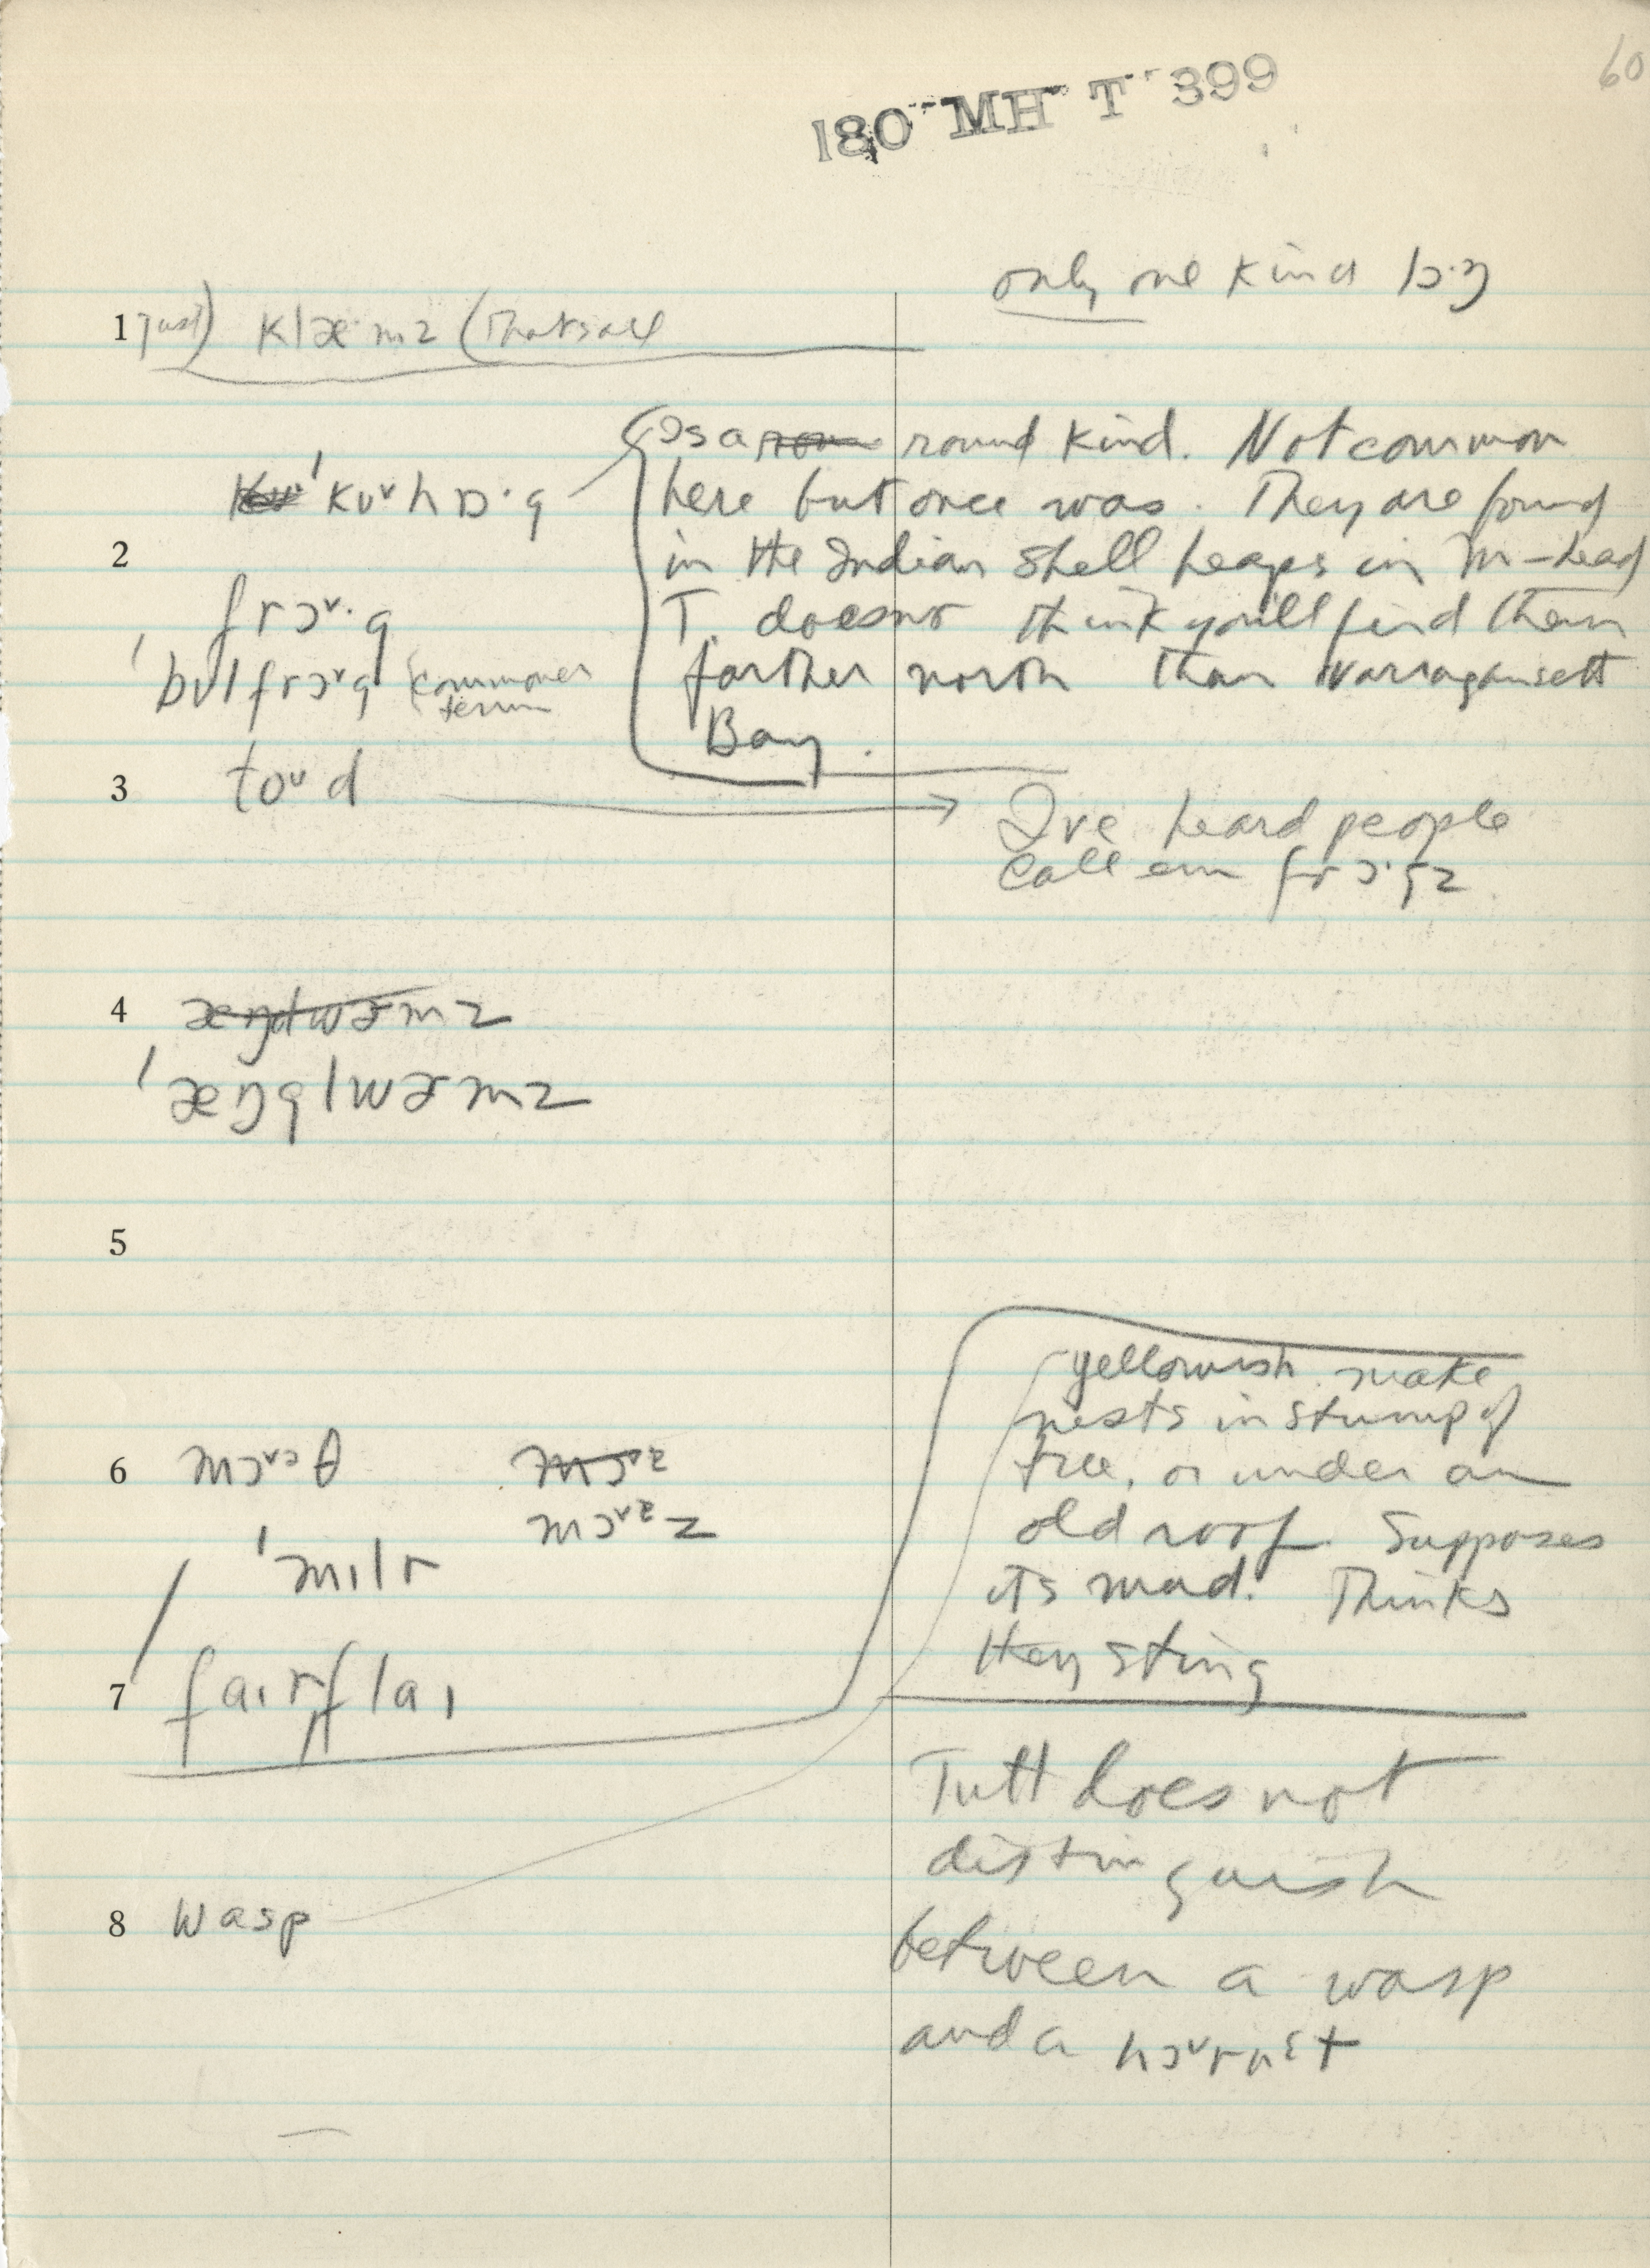 60
180 MH T 399
only one kind
1 Just) klæ·mz (That's all
Is a round kind. Not common
ˈkʊᵛhɒ·g here but once was. They are found
2 in the Indian shell heaps in M-head
frɔᵛ·g T. doesn't think you'll find them
ˈbʊlfrɔᵛg (commoner term farther north than Narragansett
Bay.
3 toᵘd
I've heard people
call em frɔ·gz
4 æŋlwɚmz
ˈæŋglwɚmz
5
yellowish. make
nests in stump of
6 mɔᵛᵊθ tree, or under an
mɔᵛᵊz old roof. Supposes
ˈmɪlr its mud. Thinks
they sting
7 ˈfaɪrˌflaɪ
Tutt does not
distinguish
8 wasp
between a wasp
and a hɔᵛrnɛt